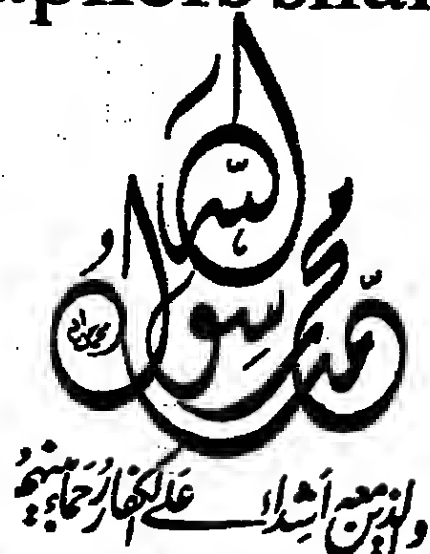 aphers shar
محمد رسول الله
والذين معه أشداء على الكفار رحماء بينهم